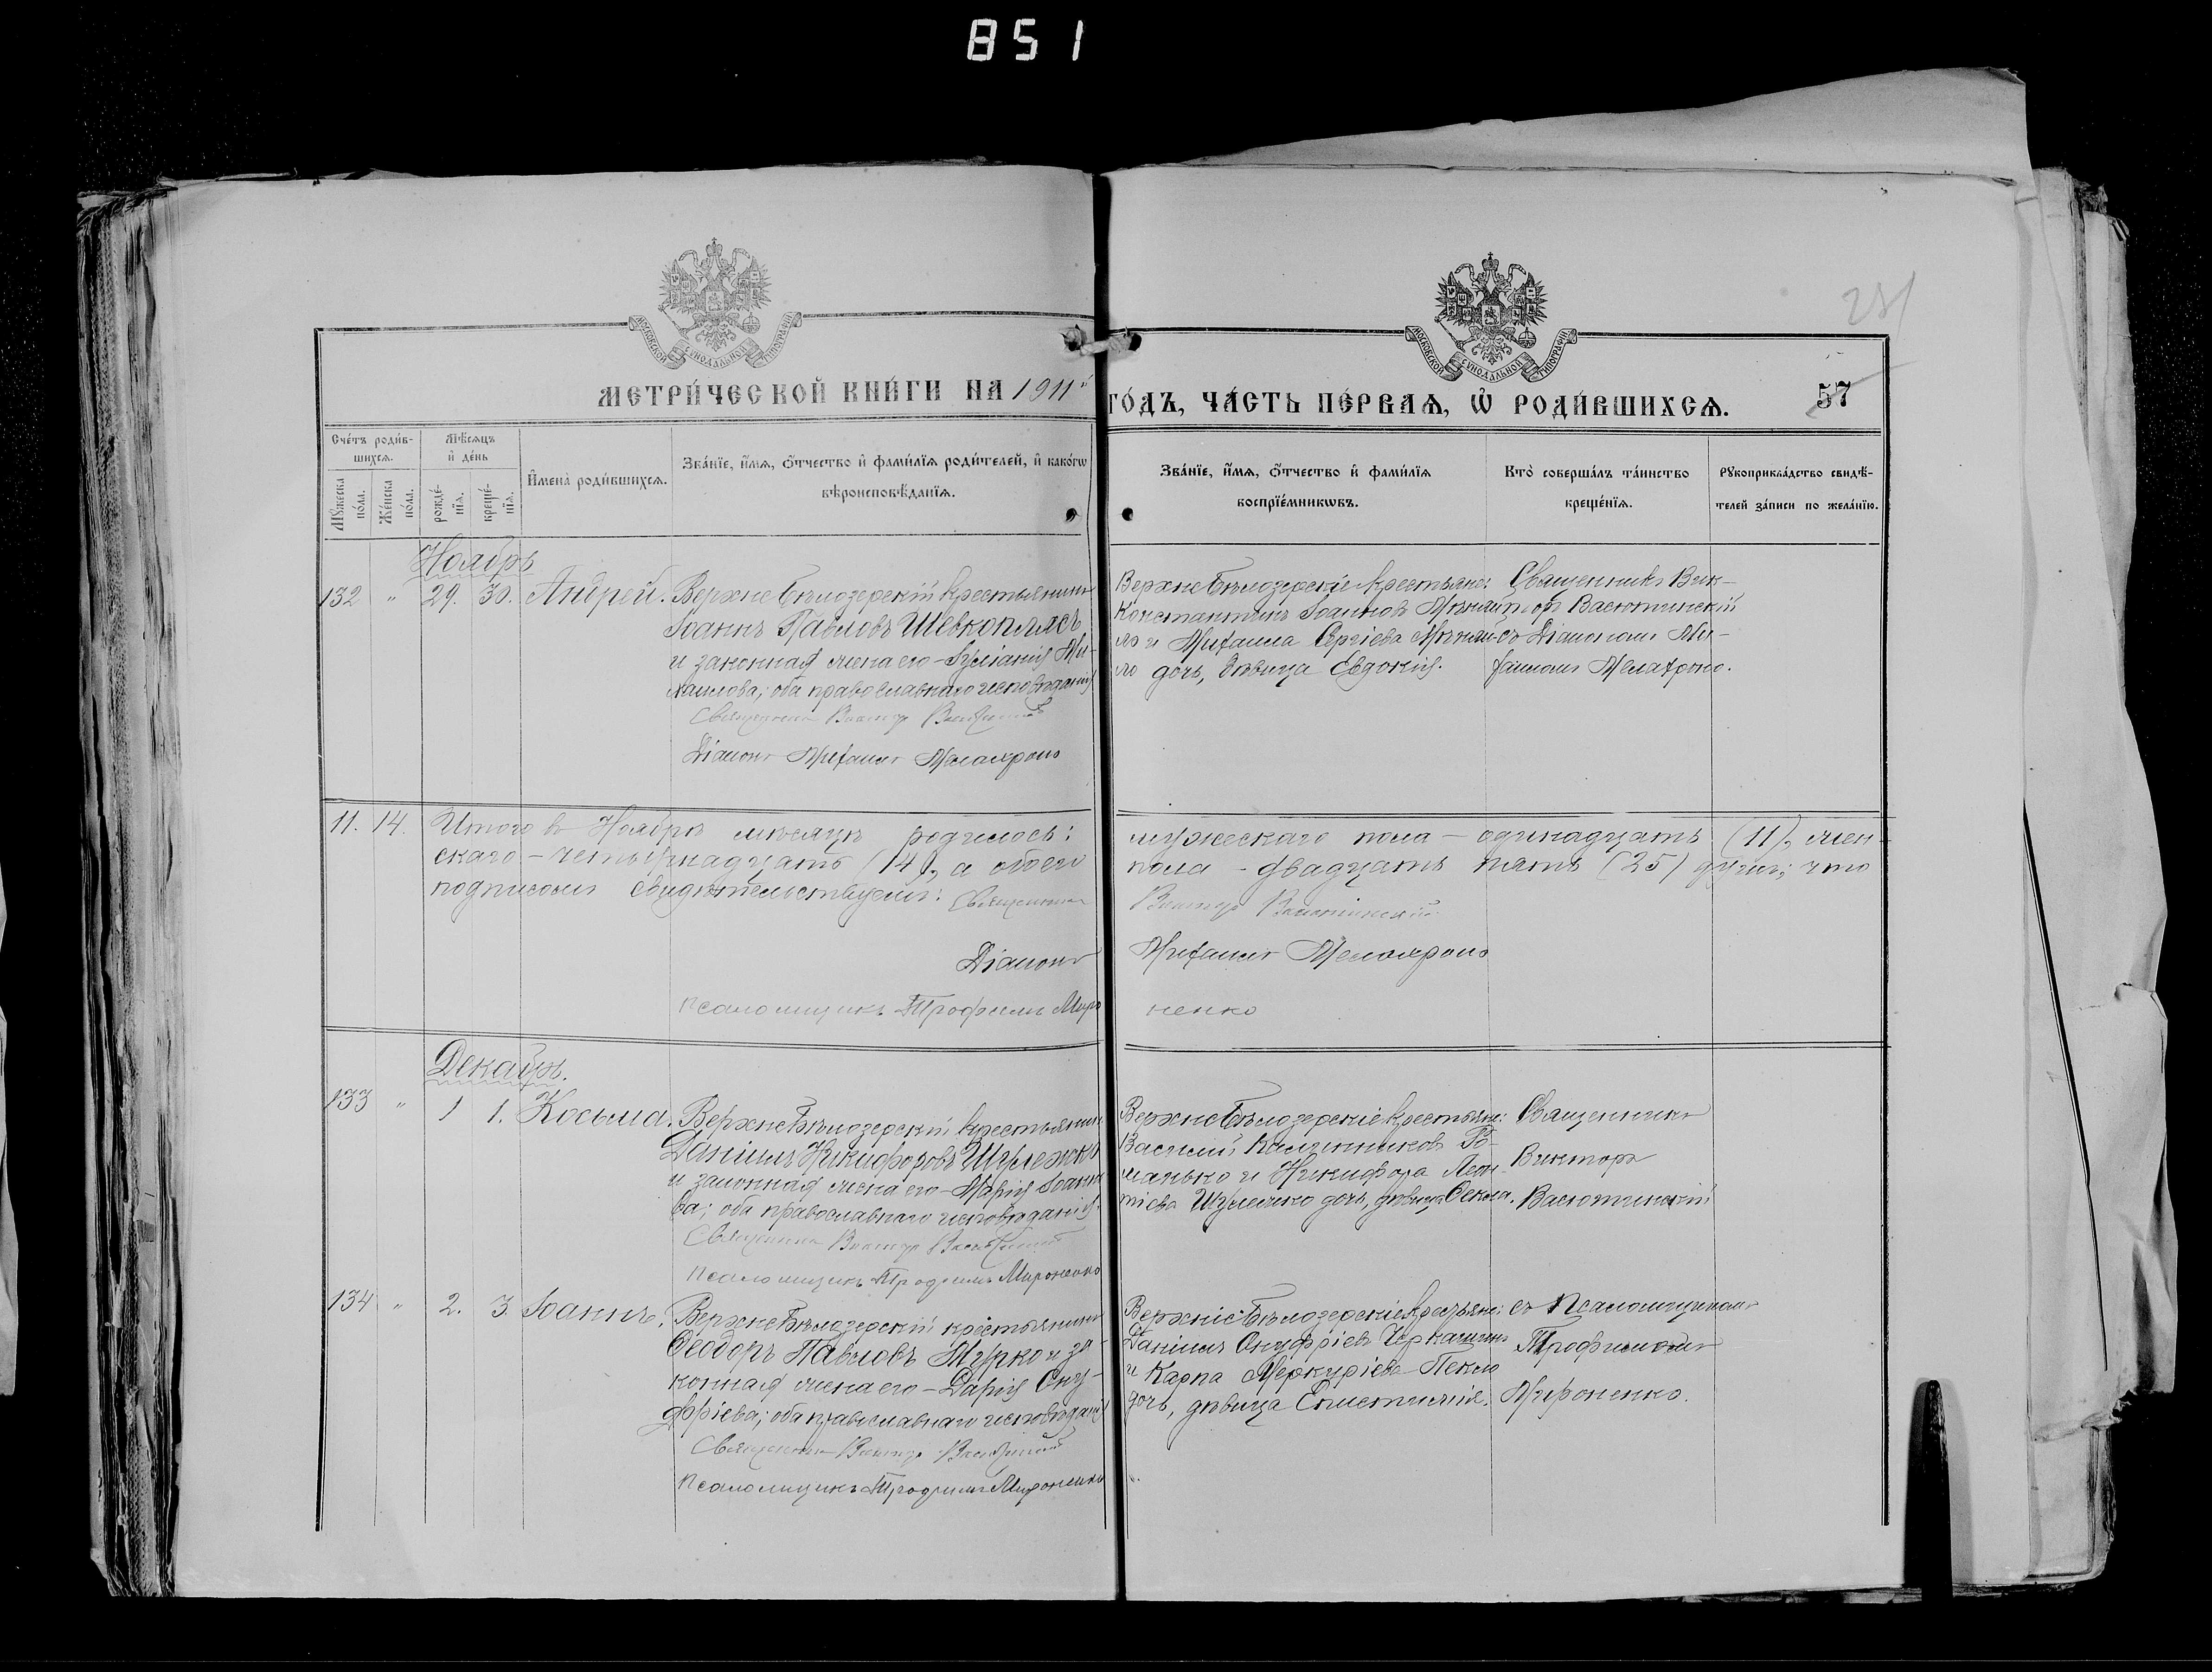 851
МОСКОВСКОЙ СУНОДАЛЬНОЙ ТИПОГРАФИИ
МОСКОВСКОЙ СУНОДАЛЬНОЙ ТИПОГРАФИИ
231
МЕТРИ́ЧЕСКОЙ КНИ́ГИ НА 1911й
ГО́ДЪ, ЧА́СТЬ ПЕ́РВАѦ, Ѡ҆ РОДИ́ВШИХСѦ.
57
Сче́тъ роди́в-
шихсѧ.
Мꙋ́жеска по́ла.
Же́нска по́ла.
Мѣ́сѧцъ
и҆ де́нь
рожде́-
нїѧ.
креще́-
нїѧ.
И҆мена̀ роди́вшихсѧ.
Зва́нїе, и҆́мѧ, ѻ҆́тчество и҆ фами́лїѧ роди́телей, и҆ како́гѡ
вѣроисповѣ́данїѧ.
Зва́нїе, и҆́мѧ, ѻ҆́тчество и҆ фами́лїѧ
воспрїе́мникѡвъ.
Кто̀ соверша́лъ та́инство
креще́нїѧ.
Рꙋкоприкла́дство свидѣ́-
телей за́писи по жела́нїю.
Ноябрь
132 " 29. 30. Андрей.
Верхнебѣлозерскій крестьянинъ
Іоаннъ Павловъ Шевкоплясъ
и законная жена его - Іуліанія Ми-
хаилова; оба православнаго исповѣданія
Священникъ Викторъ Васютинскій
Діаконъ Михаилъ Мелахроно
Верхнебѣлозерскіе крестьяне:
Константинъ Іоанновъ Мѣняй-
ло и Михаила Сергіева Мѣняй-
ло дочь, дѣвица Евдокія.
Священникъ Вик-
торъ Васютинскій
съ Діакономъ Ми-
хаиломъ Мелахроно.
11. 14. Итого въ Ноябрѣ мѣсяцѣ родилось: мужескаго пола - одинадцать (11), жен-
скаго - четырнадцать (14), а обоего пола - двадцать пять (25) душъ; что
подписомъ свидѣтельствуемъ: Священникъ Викторъ Васютинскій
Діаконъ Михаилъ Мелахроно
Псаломщикъ Трофимъ Мироненко
Декабрь.
133 " 1 1. Косьма.
Верхнебѣлозерскій крестьянинъ
Даніилъ Никифоровъ Шулежко
и законная жена его - Марія Іоанно-
ва; оба православнаго исповѣданія.
Священникъ Викторъ Васютинскій
Псаломщикъ Трофимъ Мироненко
Верхнебѣлозерскіе крестьяне:
Василій Калинниковъ Ро-
манько и Никифора Леон-
тіева Шулежко дочь, дѣвица Ѳекла.
Священникъ
Викторъ
Васютинскій
134 " 2. 3. Іоаннъ.
Верхнебѣлозерскій крестьянинъ
Ѳеодоръ Павловъ Турко и за-
конная жена его - Дарія Ону-
фріева; оба православнаго исповѣданія
Священникъ Викторъ Васютинскій
Псаломщикъ Трофимъ Мироненко
Верхнебѣлозерскіе крестьяне:
Даніилъ Онуфріевъ Черкашинъ
и Карпа Меркуріева Пекло
дочь, дѣвица Епистимія.
съ Псаломщикомъ
Трофимомъ
Мироненко.